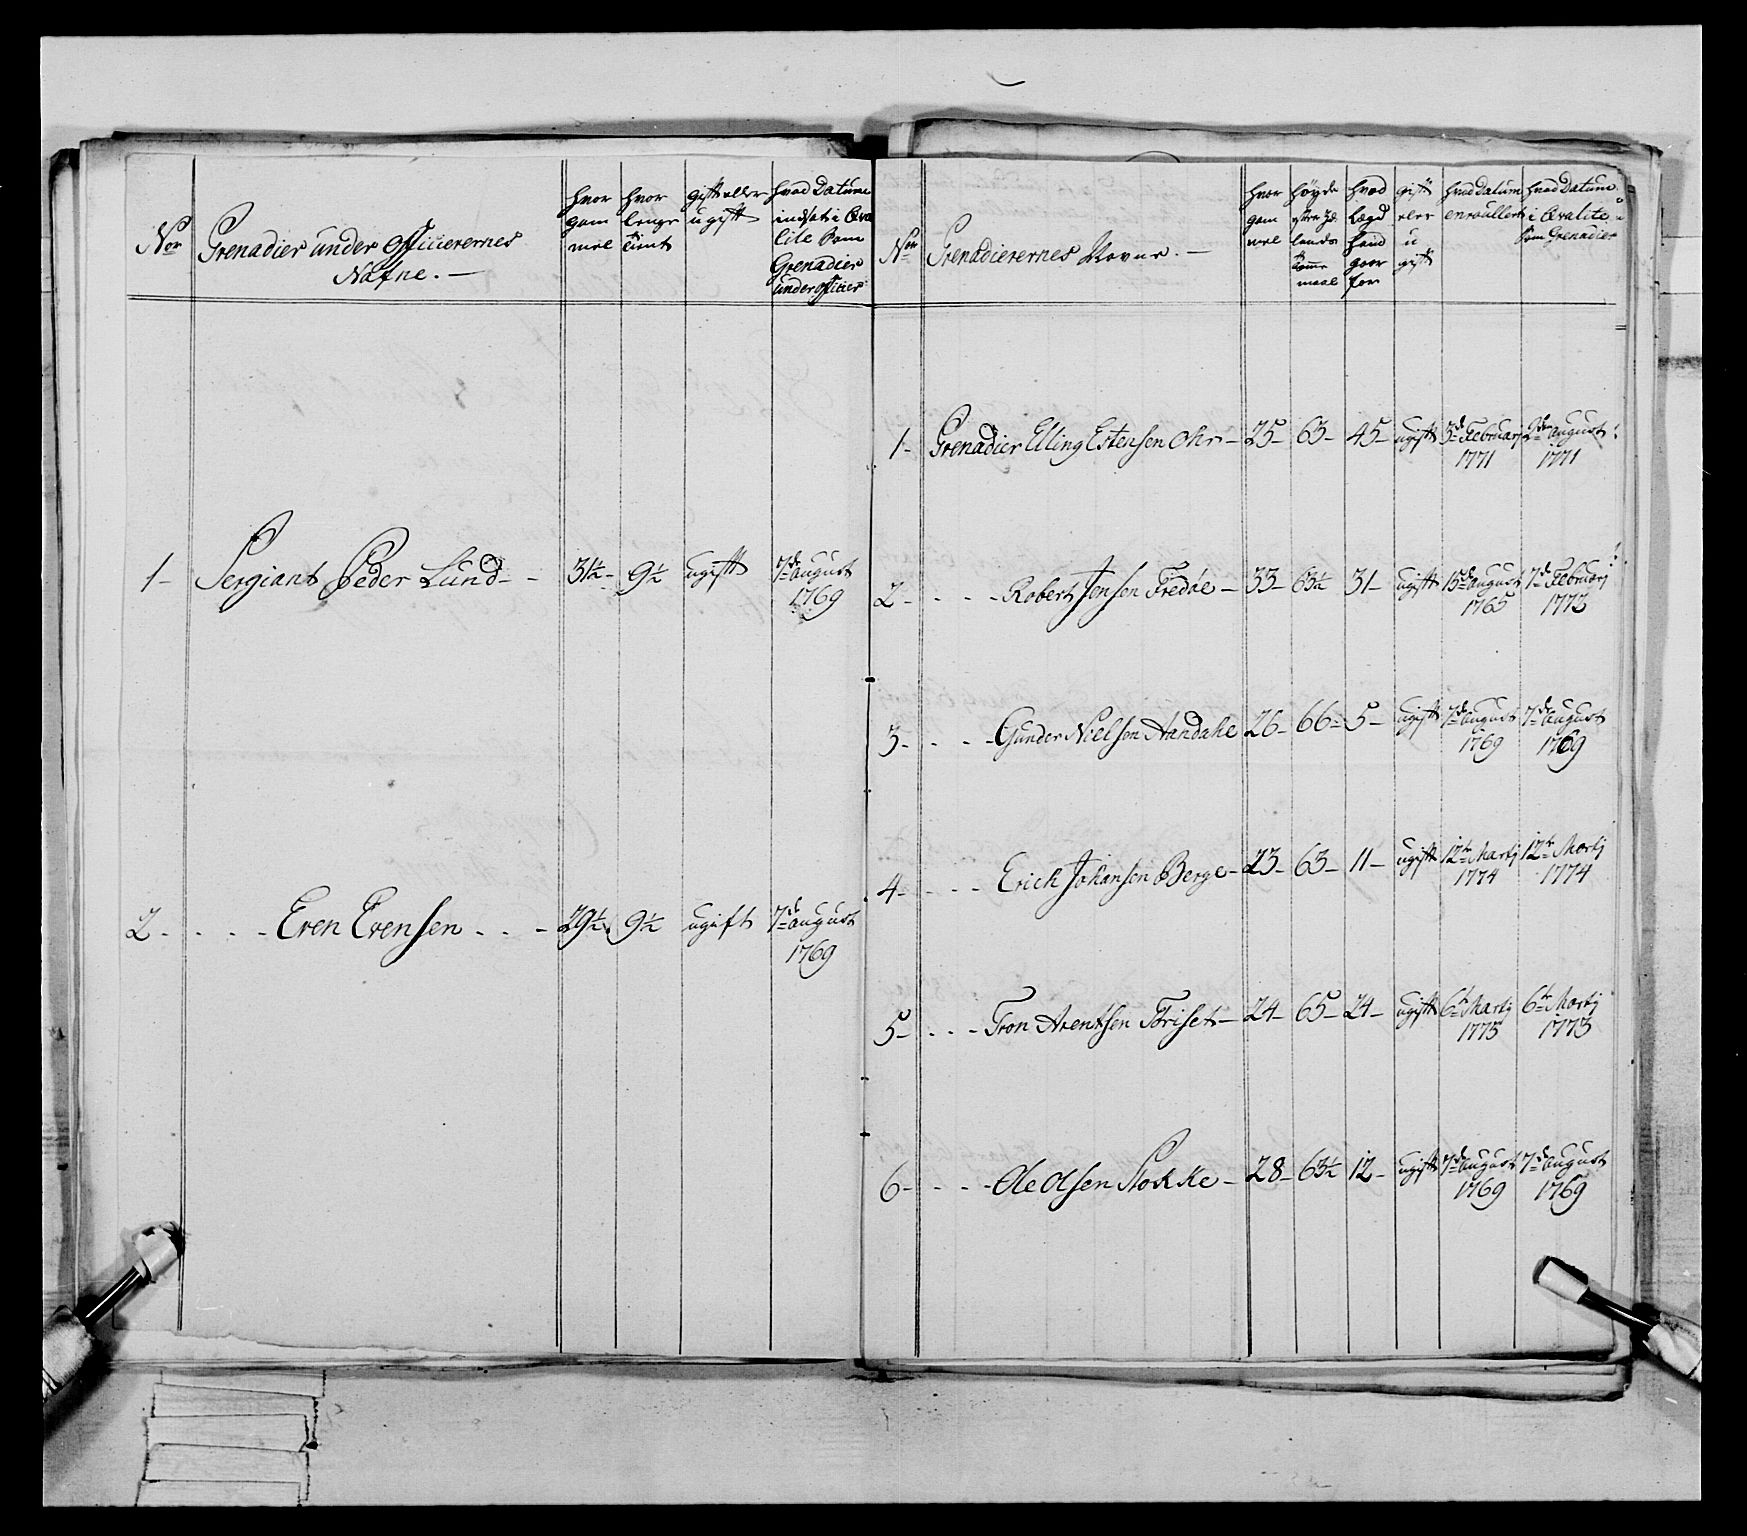 No
Grenadier under officierernes
Nafne. —
hvor
gam
mel
hvor
lenge
tient
gift eller
ugift
hvad Datum
indsat i Qva
lite som
Grenadier
underofficier
1 – Sergiant Peder Lund – – 31½ – 9½ ugift 7de august
1769
2 - - - - Even Evensen - - - 29½ 9½ ugift 7de august
1769
No
Grenadierernes Navne. —
hvor
gam
mel
høyde
efter Sæ
lands
tomme
maal
hvad
Lægd
hand
goer
for
gift
eler
u
gift
hvad Datum
enroullert
hvad Datum
i Qvalite
som Grenadier
1 – Grenadier Elling Estensen Ohr – 25 – 63 – 45 – ugift 3de Februarj 2den august
1771 1771
2 - - - - Robert Jensen Fredøe – 33 – 63½ 31 – ugift 15de august 7de Februarj
1765 1773
3 - - - - Gunder Nielsen Aandahl 26 – 66 – 5 – ugift 7de august 7de august
1769 1769
4 - - - - Erich Johansen Berge – 23 – 63 – 11 – ugift 12te Martj 12te Martj
1774 1774
5 - - - - Tron Arentsen Friset – 24 – 65 – 24 – ugift 6te Martj 6te Martj
1773 1773
6 - - - - Ole Olsen Stokke – 28 – 63½ 12 – ugift 7de august 7de august
1769 1769